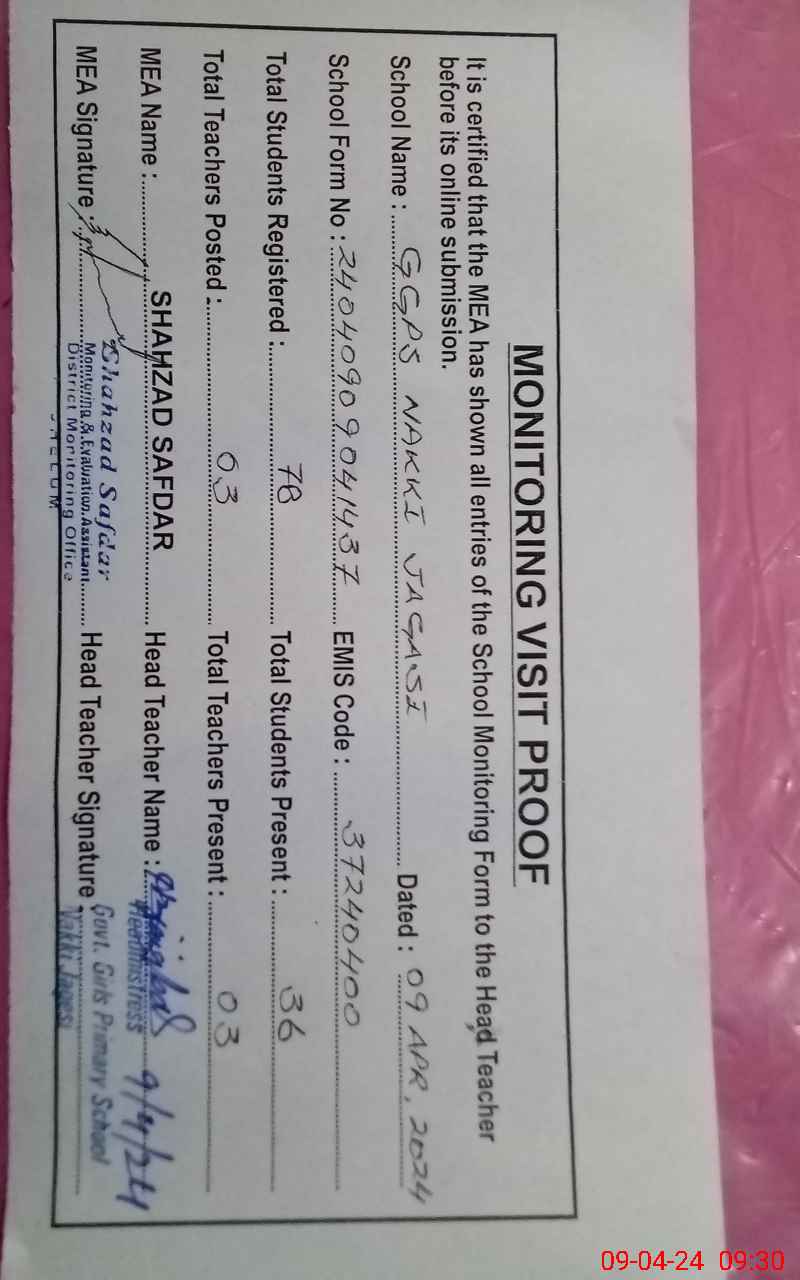 MONITORING VISIT PROOF
It is certified that the MEA has shown all entries of the School Monitoring Form to the Head Teacher
before its online submission.
School Name : GGPS NAKKI JAGASI Dated : 09 APR, 2024
School Form No : 24040909041437 EMIS Code : 37240400
Total Students Registered : 78 Total Students Present : 36
Total Teachers Posted : 03 Total Teachers Present : 03
MEA Name : SHAHZAD SAFDAR Head Teacher Name : 9/4/24
Headmistress
MEA Signature : Shahzad Safdar Head Teacher Signature : Govt. Girls Primary School
Monitoring & Evaluation Assistant Nakki Jagasi
District Monitoring Office
JHELUM
09-04-24 09:30